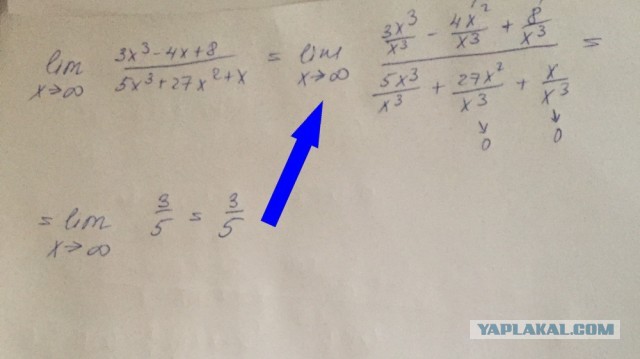 lim x→∞ (3x³ - 4x + 8)/(5x³ + 27x² + x) = lim x→∞ (3x³/x³ - 4x²/x³ + 8/x³)/(5x³/x³ + 27x²/x³ + x/x³) =
↓ 0 ↓ 0
= lim x→∞ 3/5 = 3/5
YAPLAKAL.COM